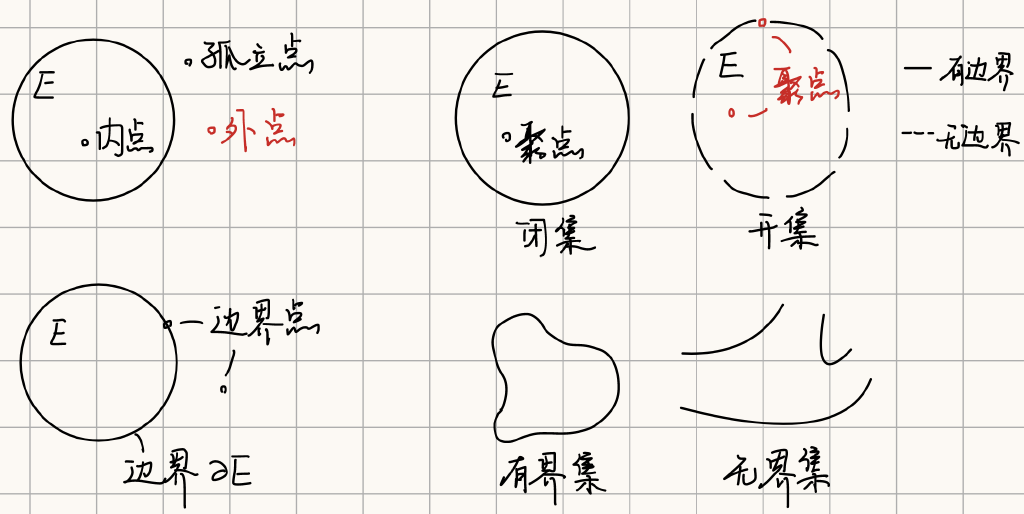 E
孤立点
内点
外点
E
聚点
闭集
E
聚点
开集
— 有边界
--- 无边界
E
边界点
边界 ∂E
有界集
无界集